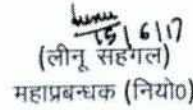 15/6/17
(लीनू सहगल)
महाप्रबन्धक (नियो0)